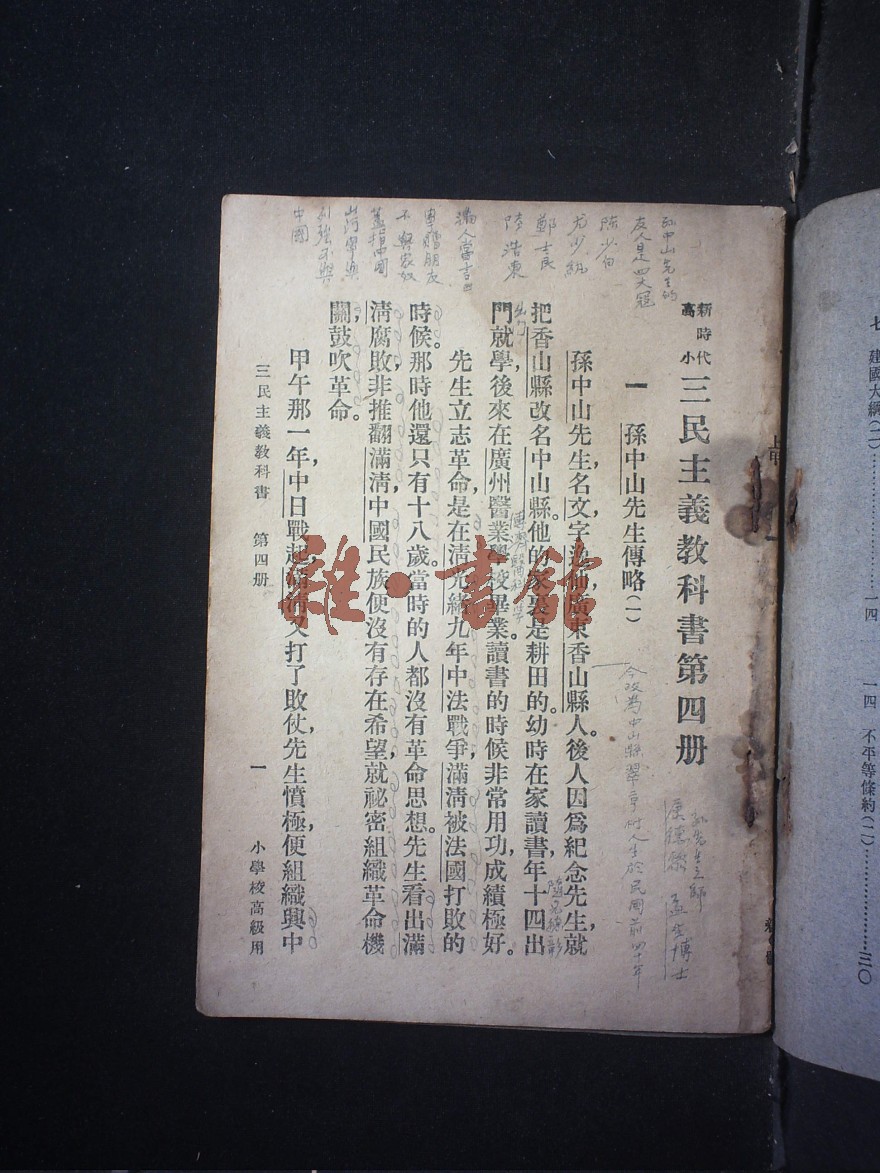 新時代
高小
三民主義教科書第四册
一 孫中山先生傳略(一)
孫中山先生,名文,字逸仙,廣東香山縣人。後人因爲紀念先生,就
把香山縣改名中山縣。他的家裏是耕田的。幼時在家讀書,年十四出
門就學,後來在廣州醫業學校畢業。讀書的時候,非常用功,成績極好。
先生立志革命,是在清光緒九年中法戰爭,滿清被法國打敗的
時候。那時他還只有十八歲。當時的人都沒有革命思想。先生看出滿
清腐敗,非推翻滿清,中國民族便沒有存在希望,就祕密組織革命機
關,鼓吹革命。
甲午那一年,中日戰起,滿清又打了敗仗,先生憤極,便組織興中
三民主義教科書 第四册 一 小學校高級用
孫中山先生的
友人是四大寇
陳少白
尤少紈
鄭士良
陸浩東
滿人常言曰
寧贈朋友
不與家奴
蓋指中國
山河寧與
列強不與
中國
今改為中山縣翠亨村人生於民國前四十年
孫先生之師
康德黎 孟生博士
七 建國大綱(二) 一四
一四 不平等條約(二) 三〇
雜·書館